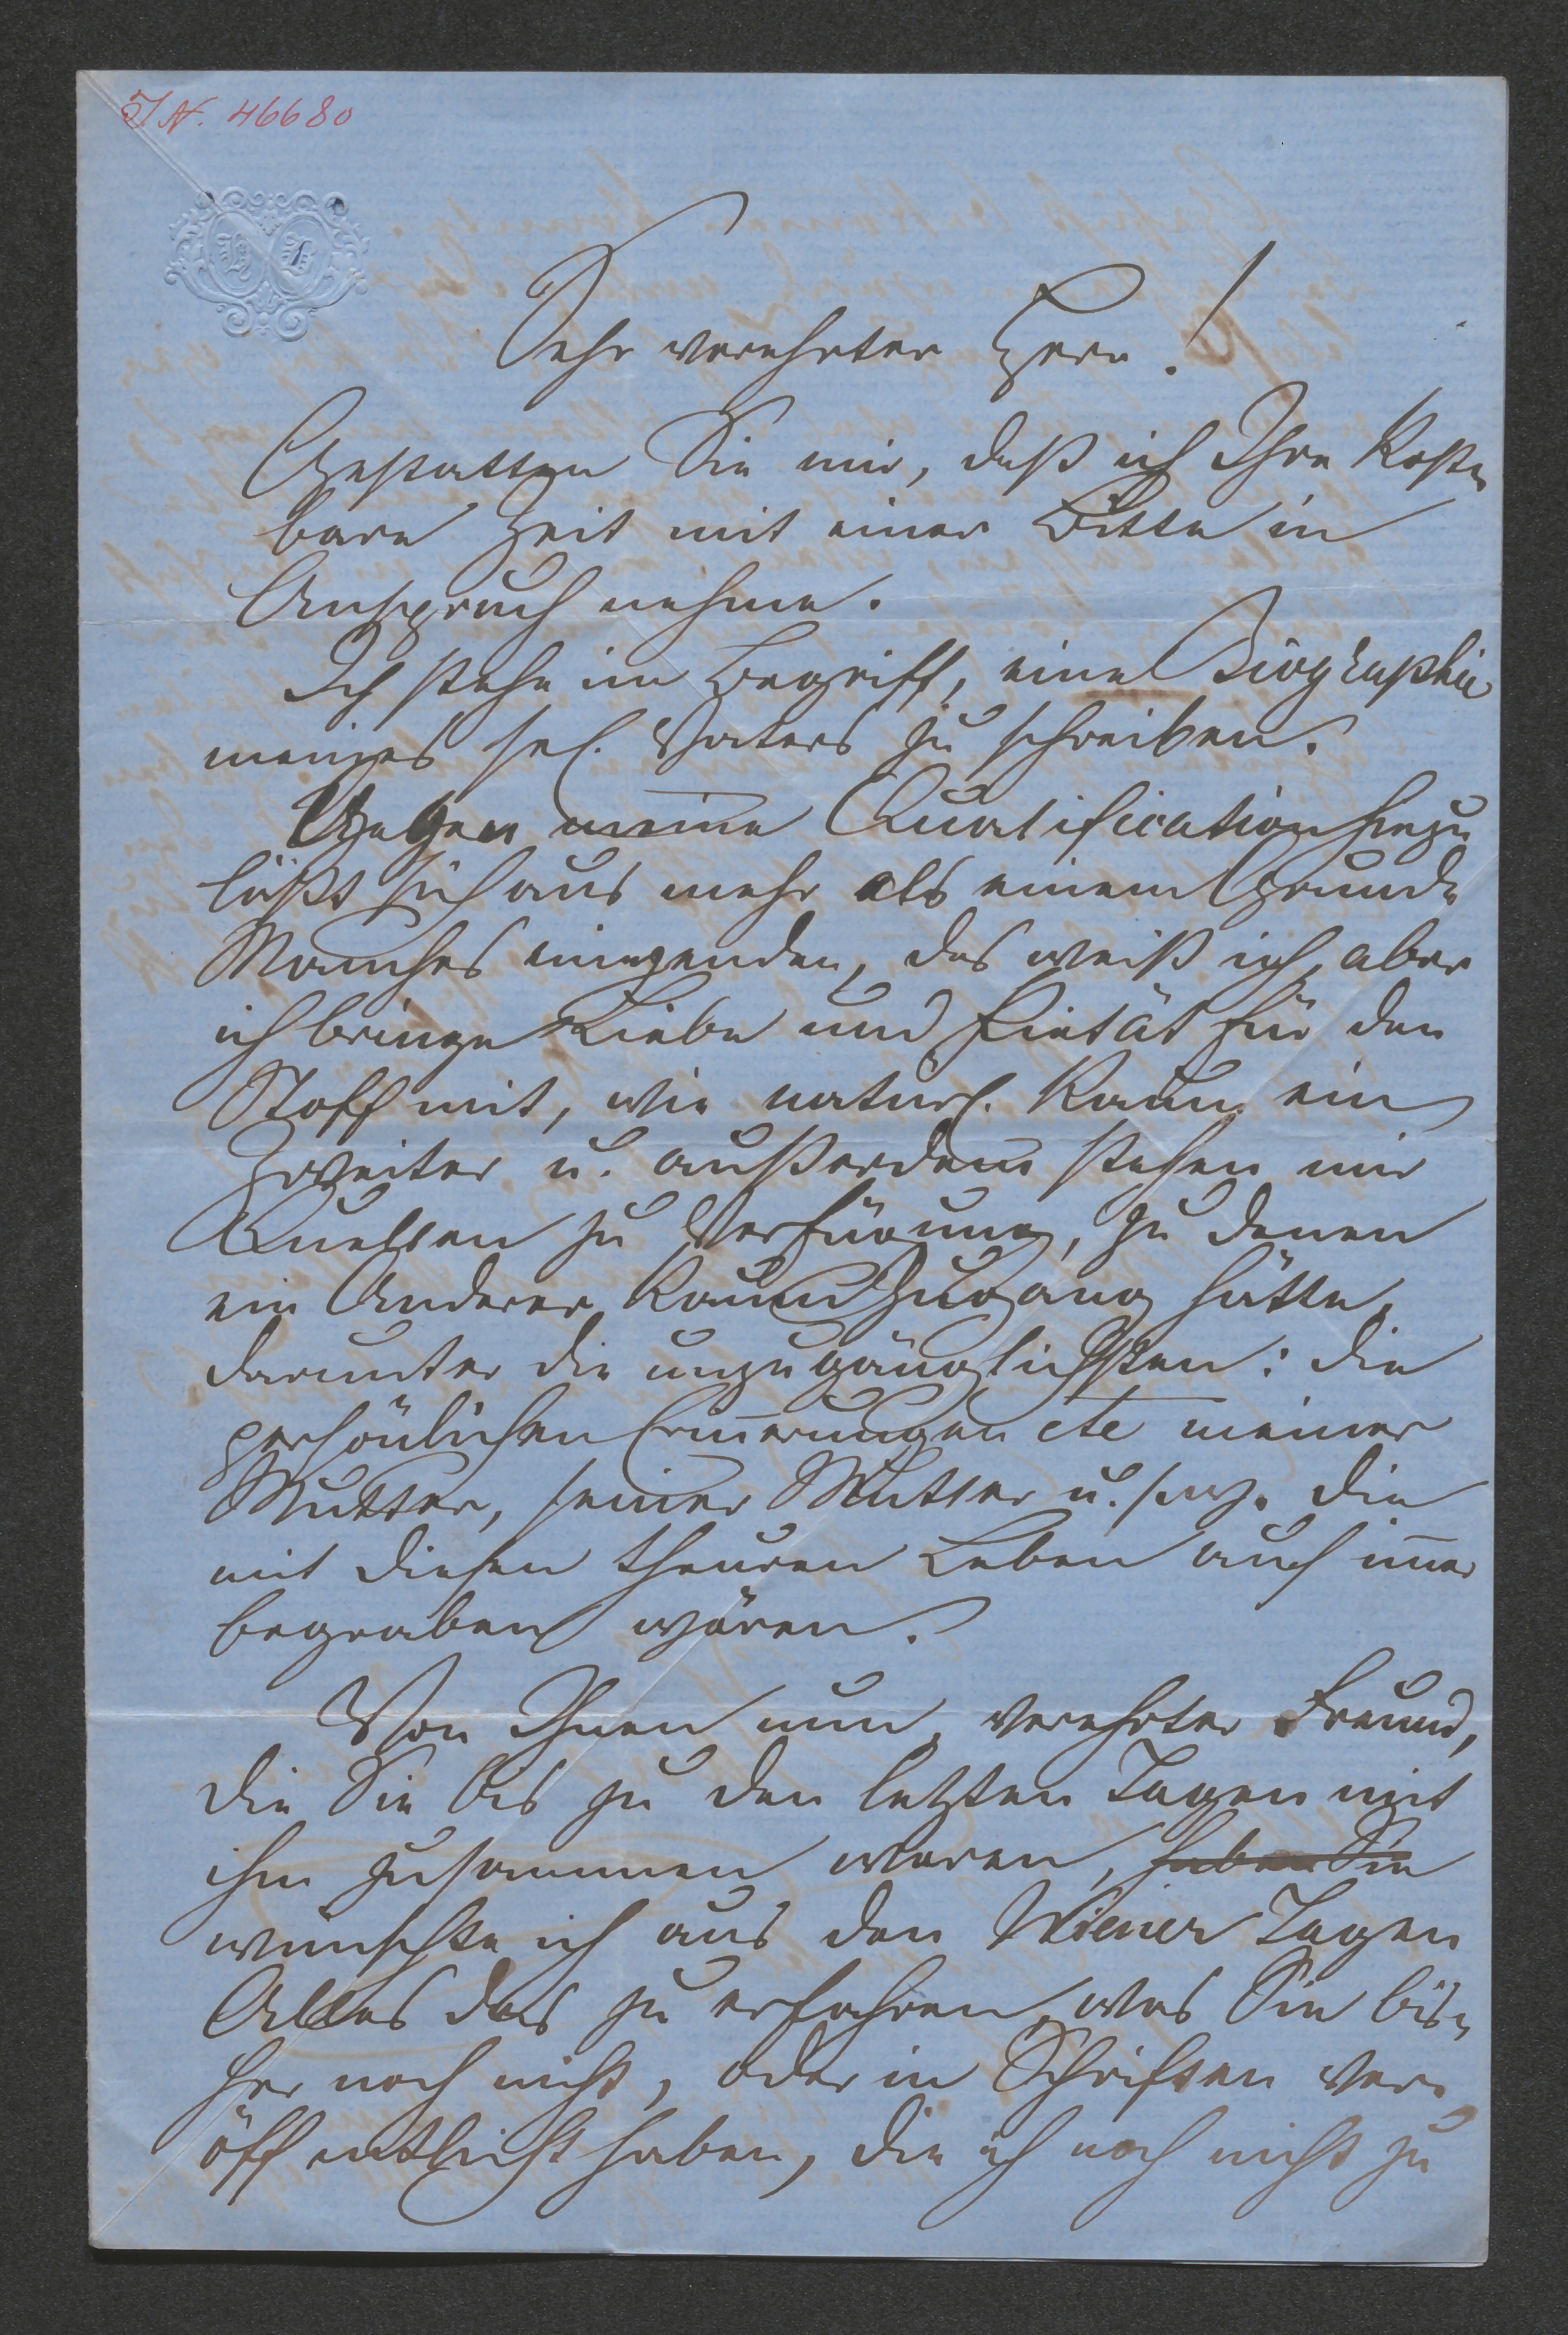 I.N. 46680
Sehr verehrter Herr!
Gestatten Sie mir, daß ich Ihre kost-
bare Zeit mit einer Bitte in
Anspruch nehme.
Ich stehe im Begriff, eine Biographie
meines sel. Vaters zu schreiben.
Gegen meine Qualification hiezu
läßt sich aus mehr als einem Grunde
Manches einwenden, das weiß ich, aber
ich bringe Liebe und Pietät für den
Stoff mit, wie natürl. kaum ein
Zweiter u. außerdem stehen mir
Quellen zu Verfügung, zu denen
ein Anderer kaum Zugang hätte,
darunter die unzugänglichsten: die
persönlichen Erin̄erungen etc meiner
Mutter, seiner Mutter u.s.w. die
mit diesen theuren Leben auch im̄er
begraben wären.
Von Ihnen nun, verehrter Freund,
die Sie bis zu den letzten Tagen mit
ihm zusammen waren, haben Sie
wünschte ich aus den Wiener Tagen
Alles das zu erfahren, was Sie bis-
her noch nicht, oder in Schriften ver-
öffentlicht haben, die ich noch nicht zu